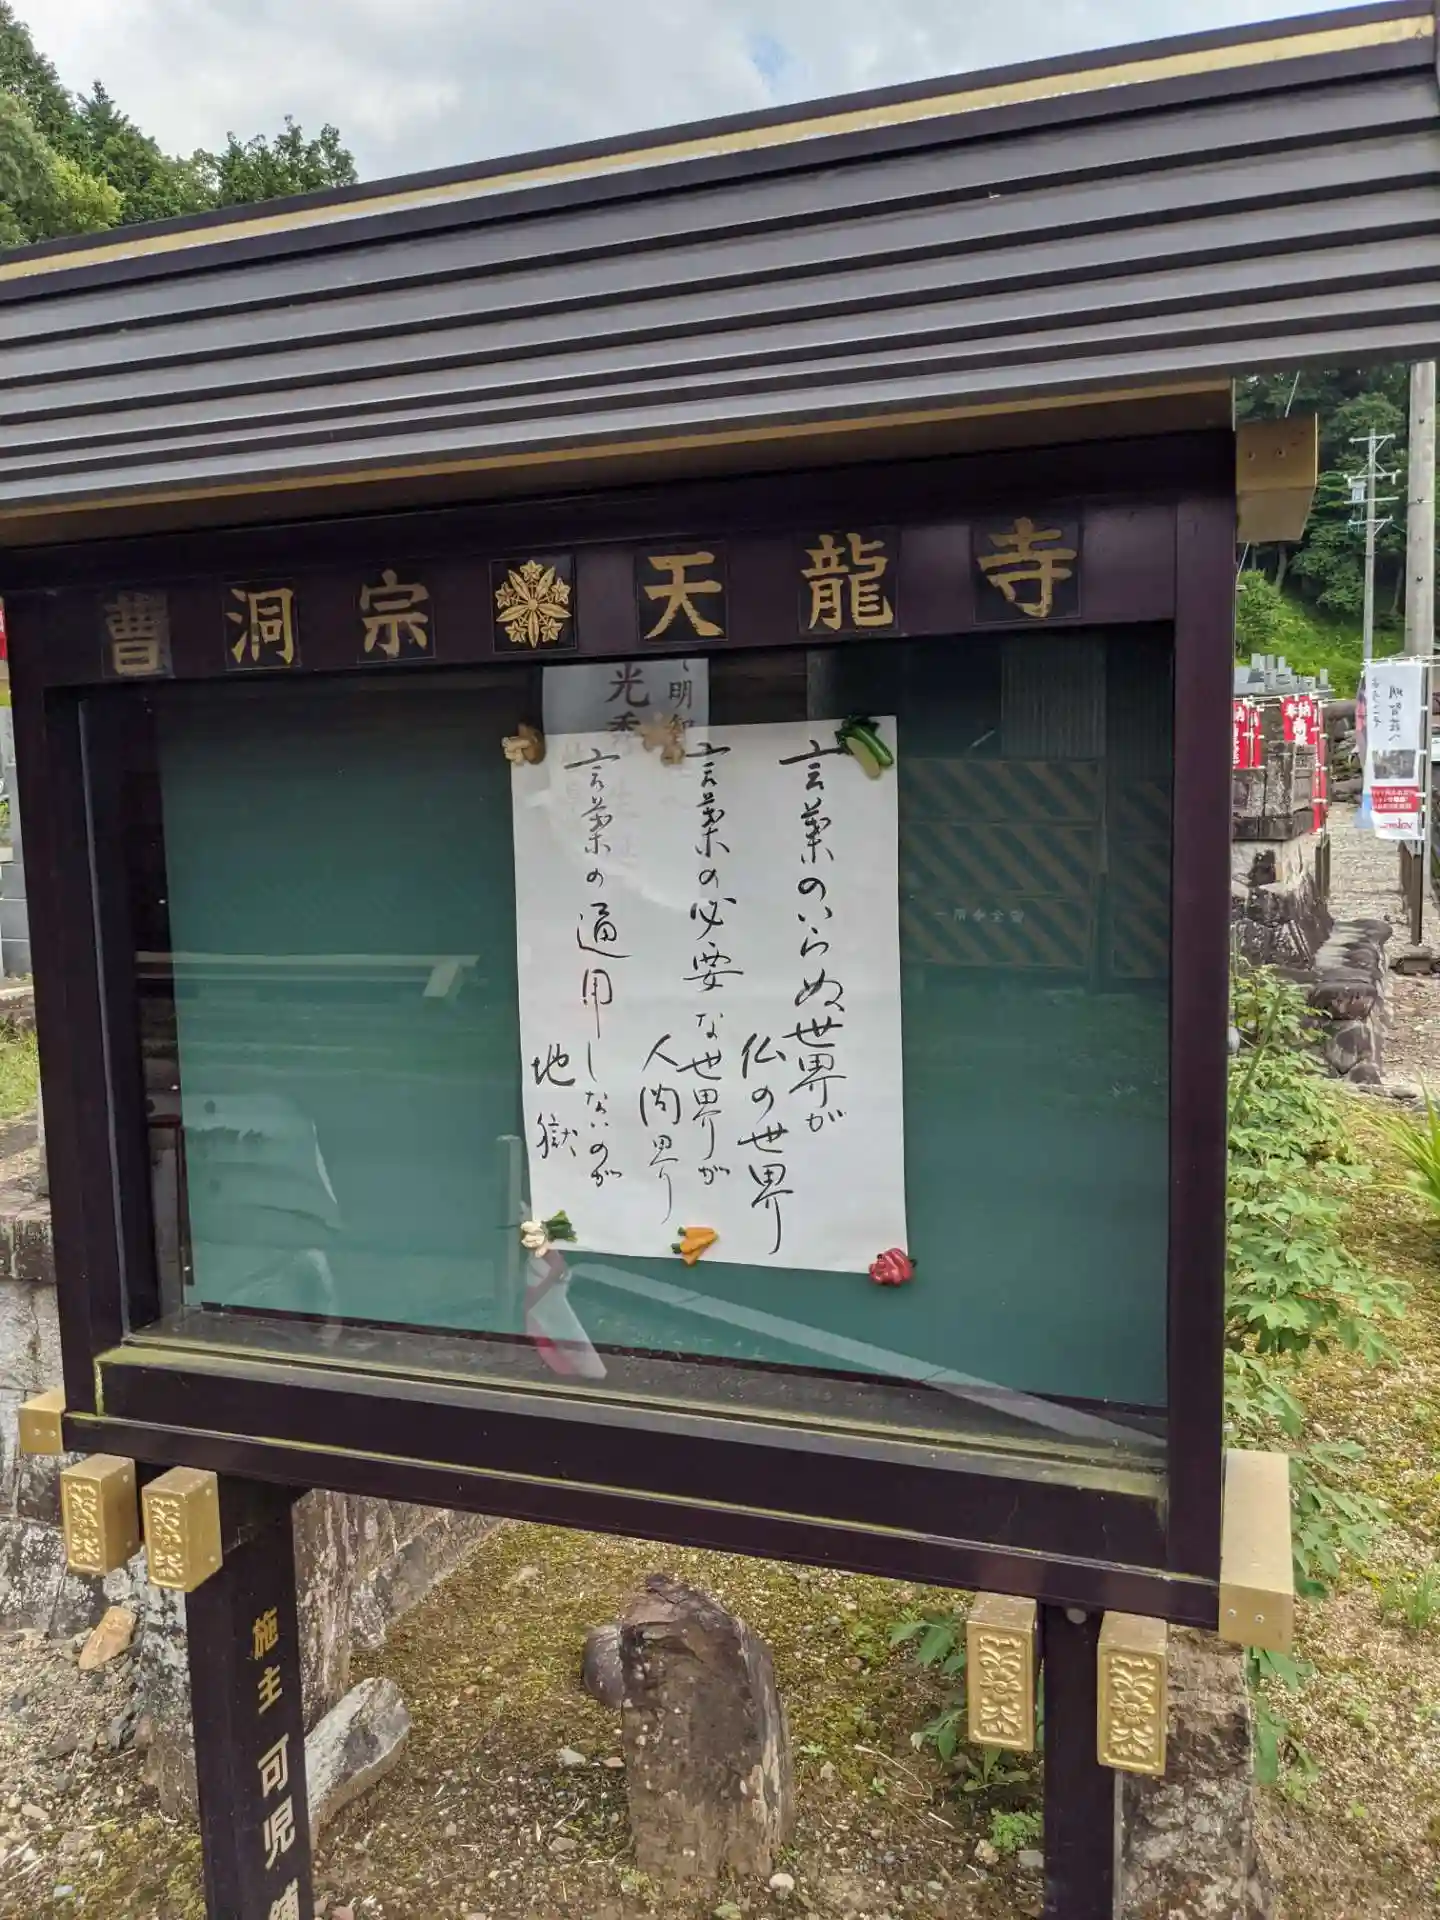 曹洞宗 天龍寺
言葉のいらぬ世界が
仏の世界
言葉の必要な世界が
人間界
言葉の通用しないのが
地獄
明智
光秀
施主 可児
明智荘へ
ようこそ
奉納